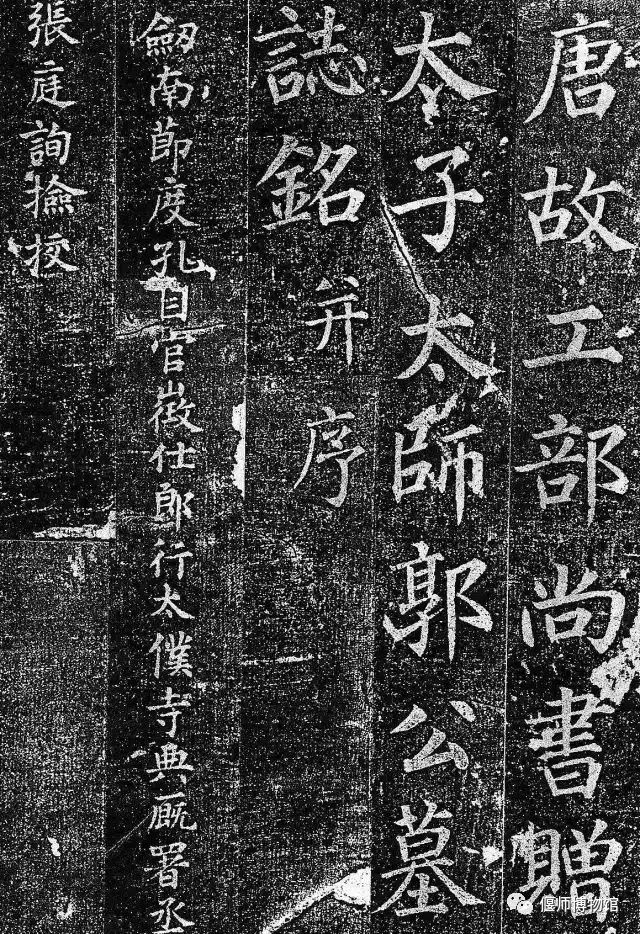 唐故工部尚書贈
太子太師郭公墓
誌銘并序
劒南節度孔目官徵仕郎行太僕寺典廐署丞
張庭詢撿挍
偃师博物馆